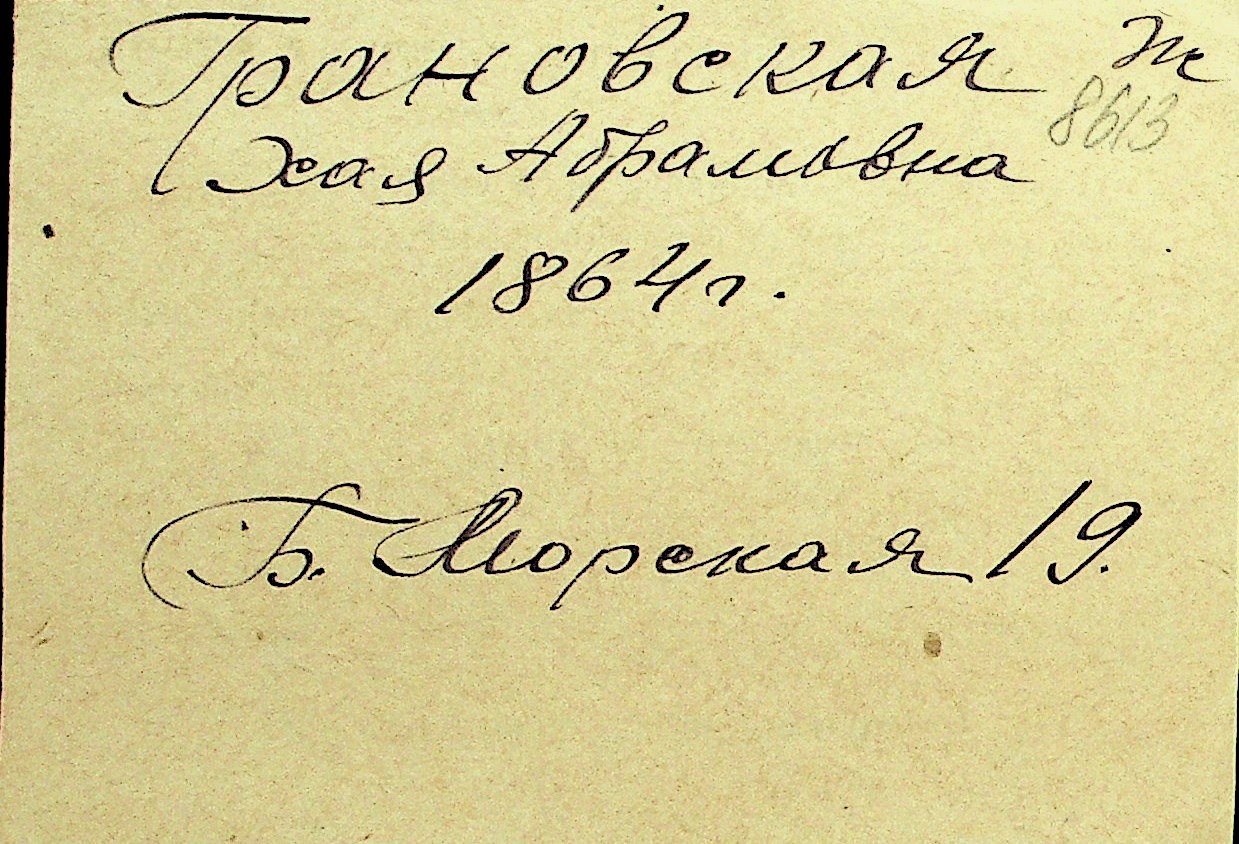 Грановская ж
8613
Хая Абрамовна
1864 г.
Б. Морская 19.